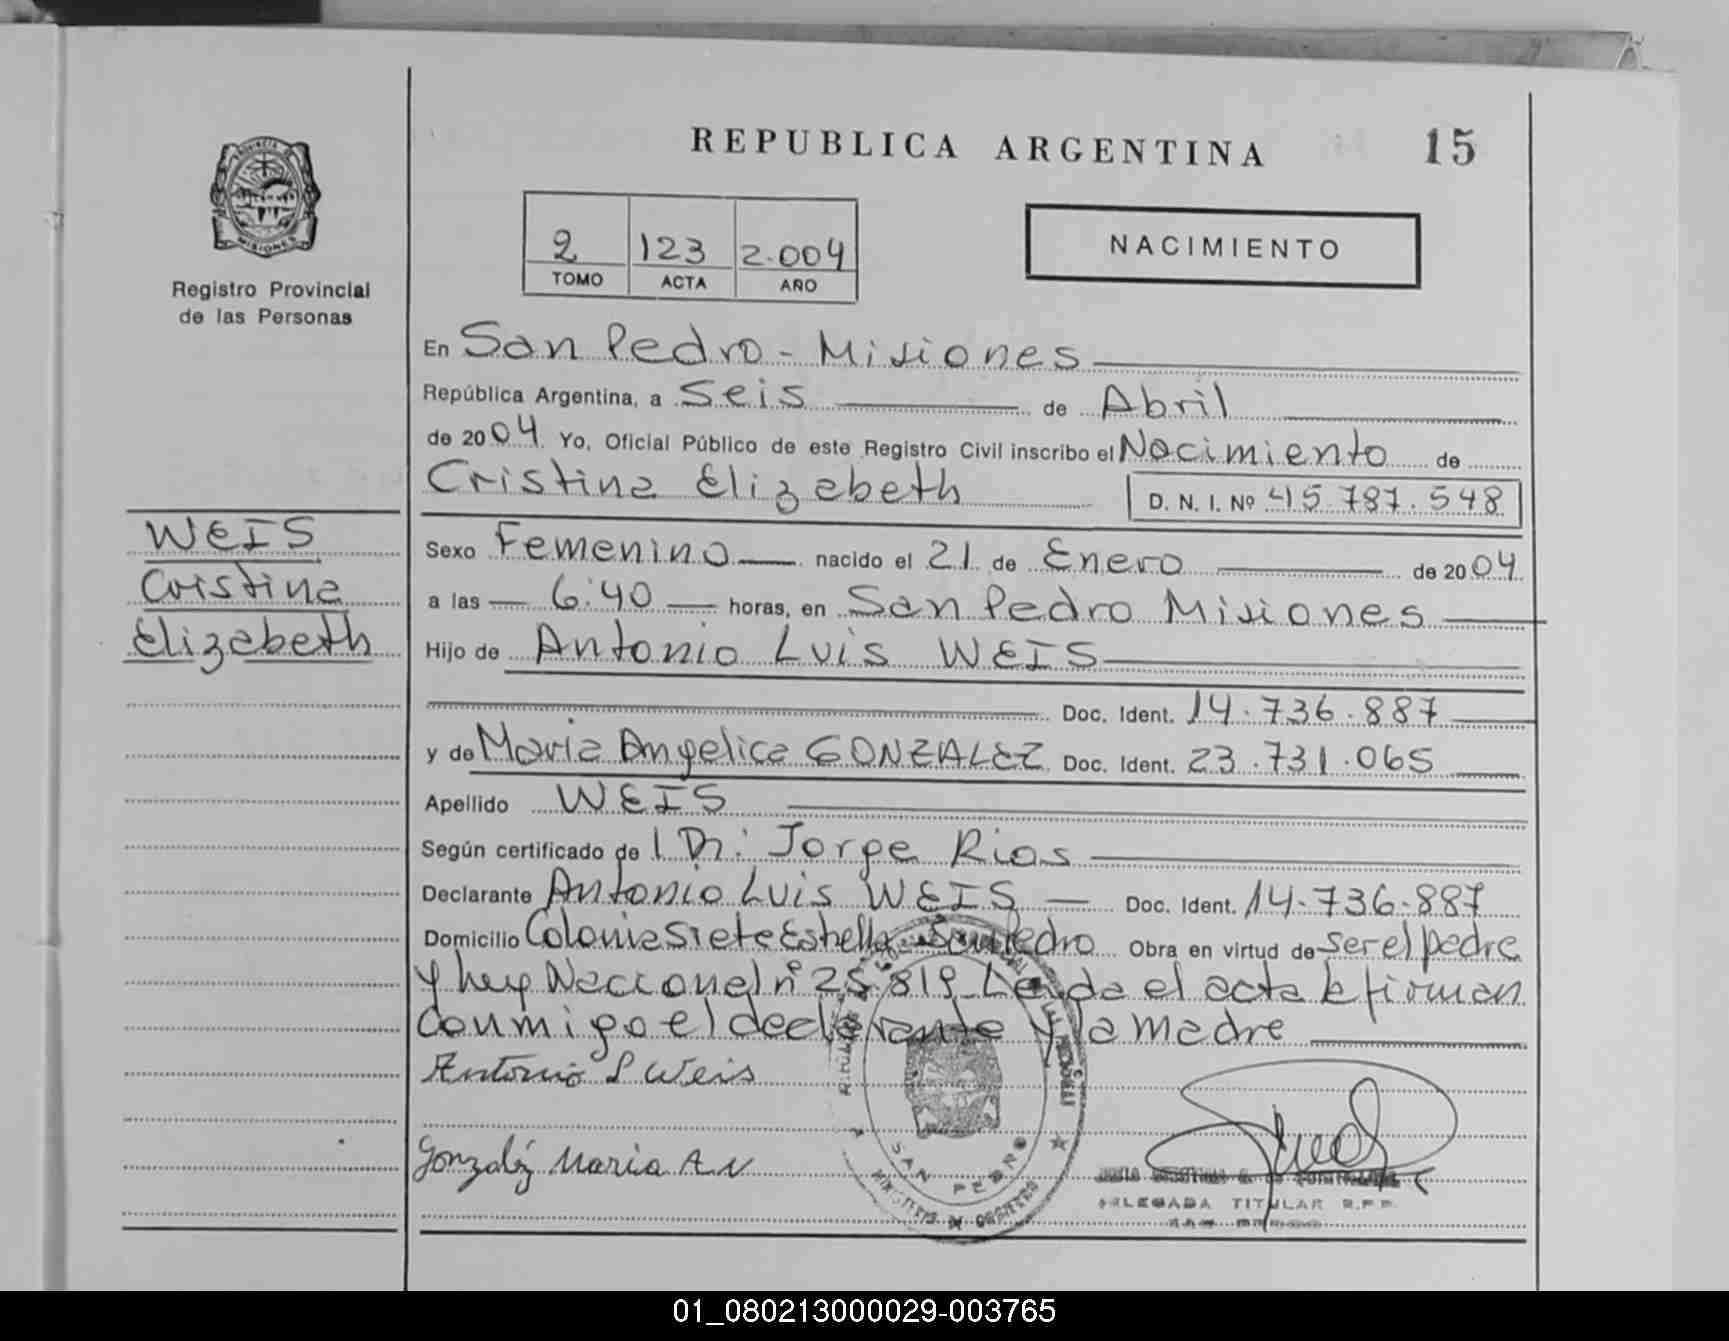 REPUBLICA ARGENTINA
15
PROVINCIA DE
MISIONES
Registro Provincial
de las Personas
2 123 2.004
TOMO ACTA AÑO
NACIMIENTO
En San Pedro - Misiones
República Argentina, a Seis de Abril
de 2004 Yo, Oficial Público de este Registro Civil inscribo el Nacimiento de
Cristina Elizabeth D. N. I. Nº 45.787.548
WEIS
Cristina
Elizabeth
Sexo Femenino nacido el 21 de Enero de 2004
a las 6:40 horas, en San Pedro Misiones
Hijo de Antonio Luis WEIS
Doc. Ident. 14.736.887
y de Maria Angelica GONZALEZ Doc. Ident. 23.731.065
Apellido WEIS
Según certificado de Dr: Jorge Rios
Declarante Antonio Luis WEIS Doc. Ident. 14-736-887
Domicilio Colonia Siete Estrella San Pedro Obra en virtud de ser el padre
y Ley Nacional nº 25.819 Leida el acta la firman
conmigo el declarante y la madre
Antonio L Weis
González Maria A
SAN PEDRO
DELEGADA TITULAR R.P.P.
01_080213000029-003765